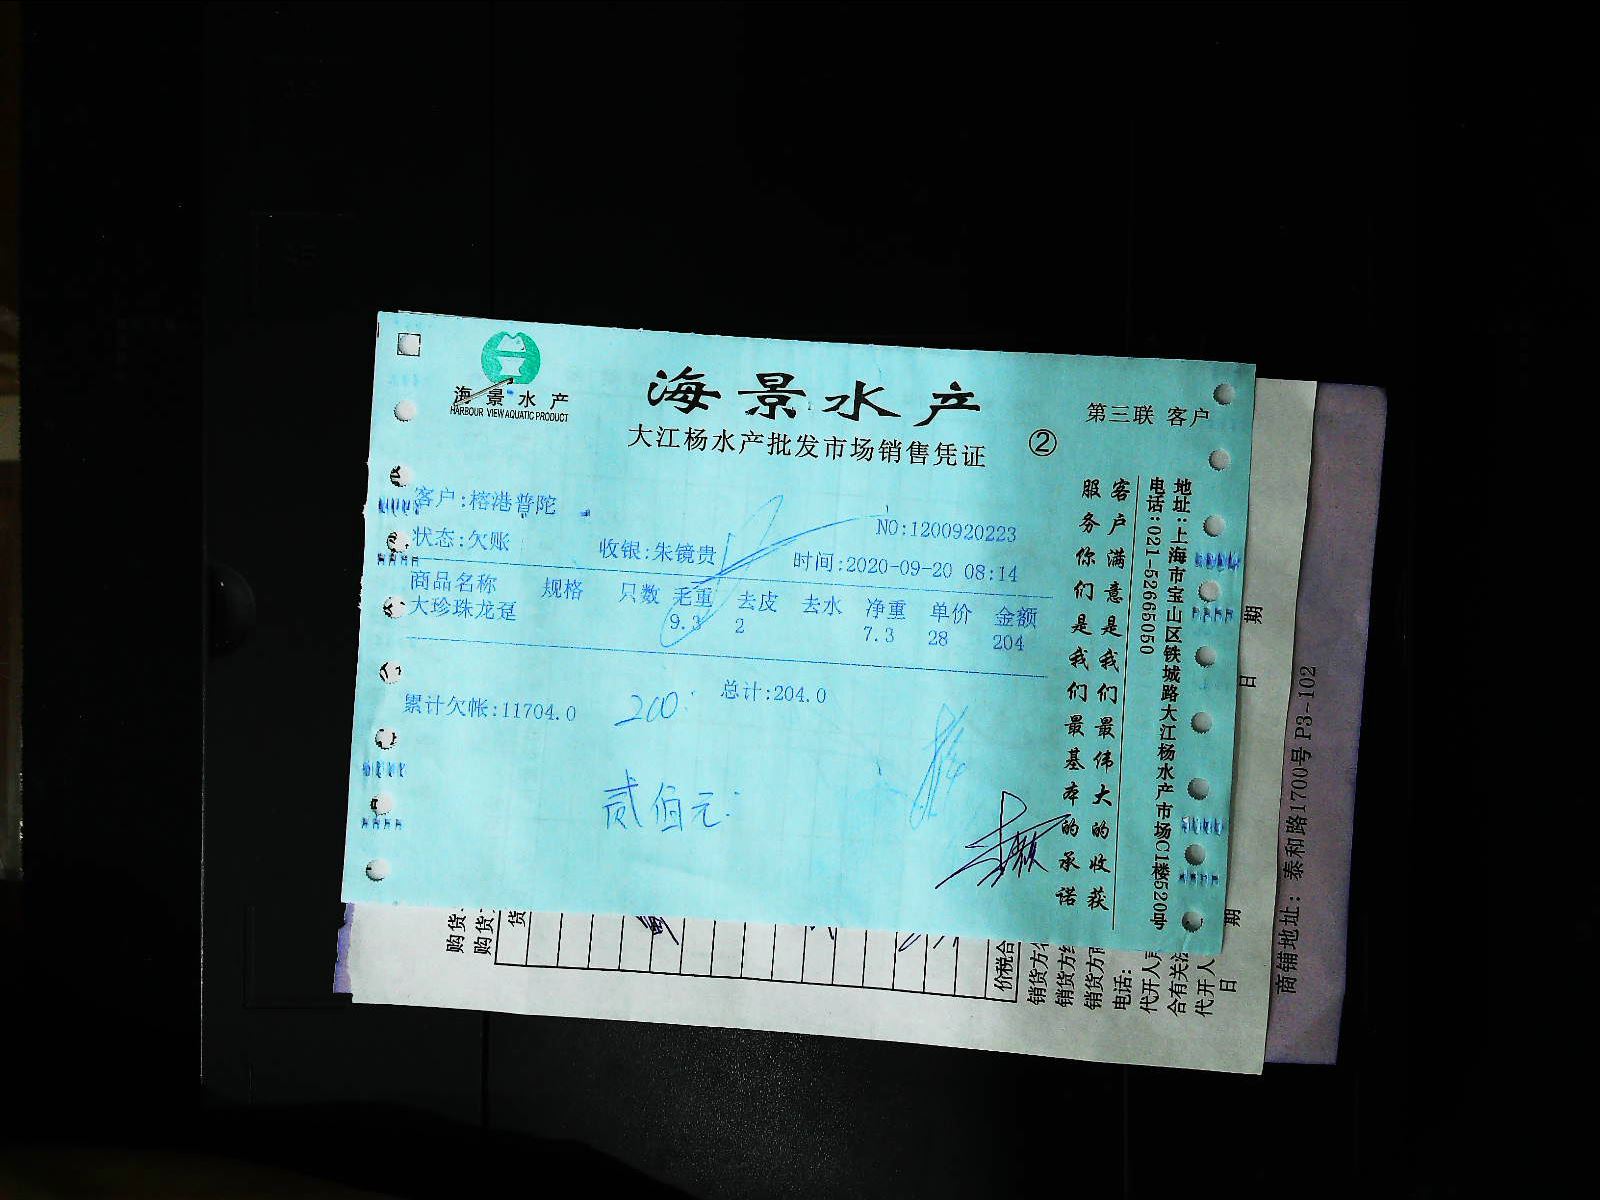 海景水产
HARBOUR VIEW AQUATIC PRODUCT
海景水产
大江杨水产批发市场销售凭证
②
第三联 客户
客户:榕港普陀
NO:1200920223
状态:欠账
收银:朱镜贵
时间:2020-09-20 08:14
商品名称 规格 只数 毛重 去皮 去水 净重 单价 金额
大珍珠龙趸 9.3 2 7.3 28 204
累计欠帐:11704.0
200
总计:204.0
贰佰元
客户满意是我们最伟大的收获
服务你们是我们最基本的承诺
地址:上海市宝山区铁城路大江杨水产市场C1楼520号
电话:021-52665050
购货
购货
货
价税合
销货方
销货方
销货方
电话:
代开人
含有关
代开人
日
期
日
期
商铺地址: 泰和路1700号 P3-102